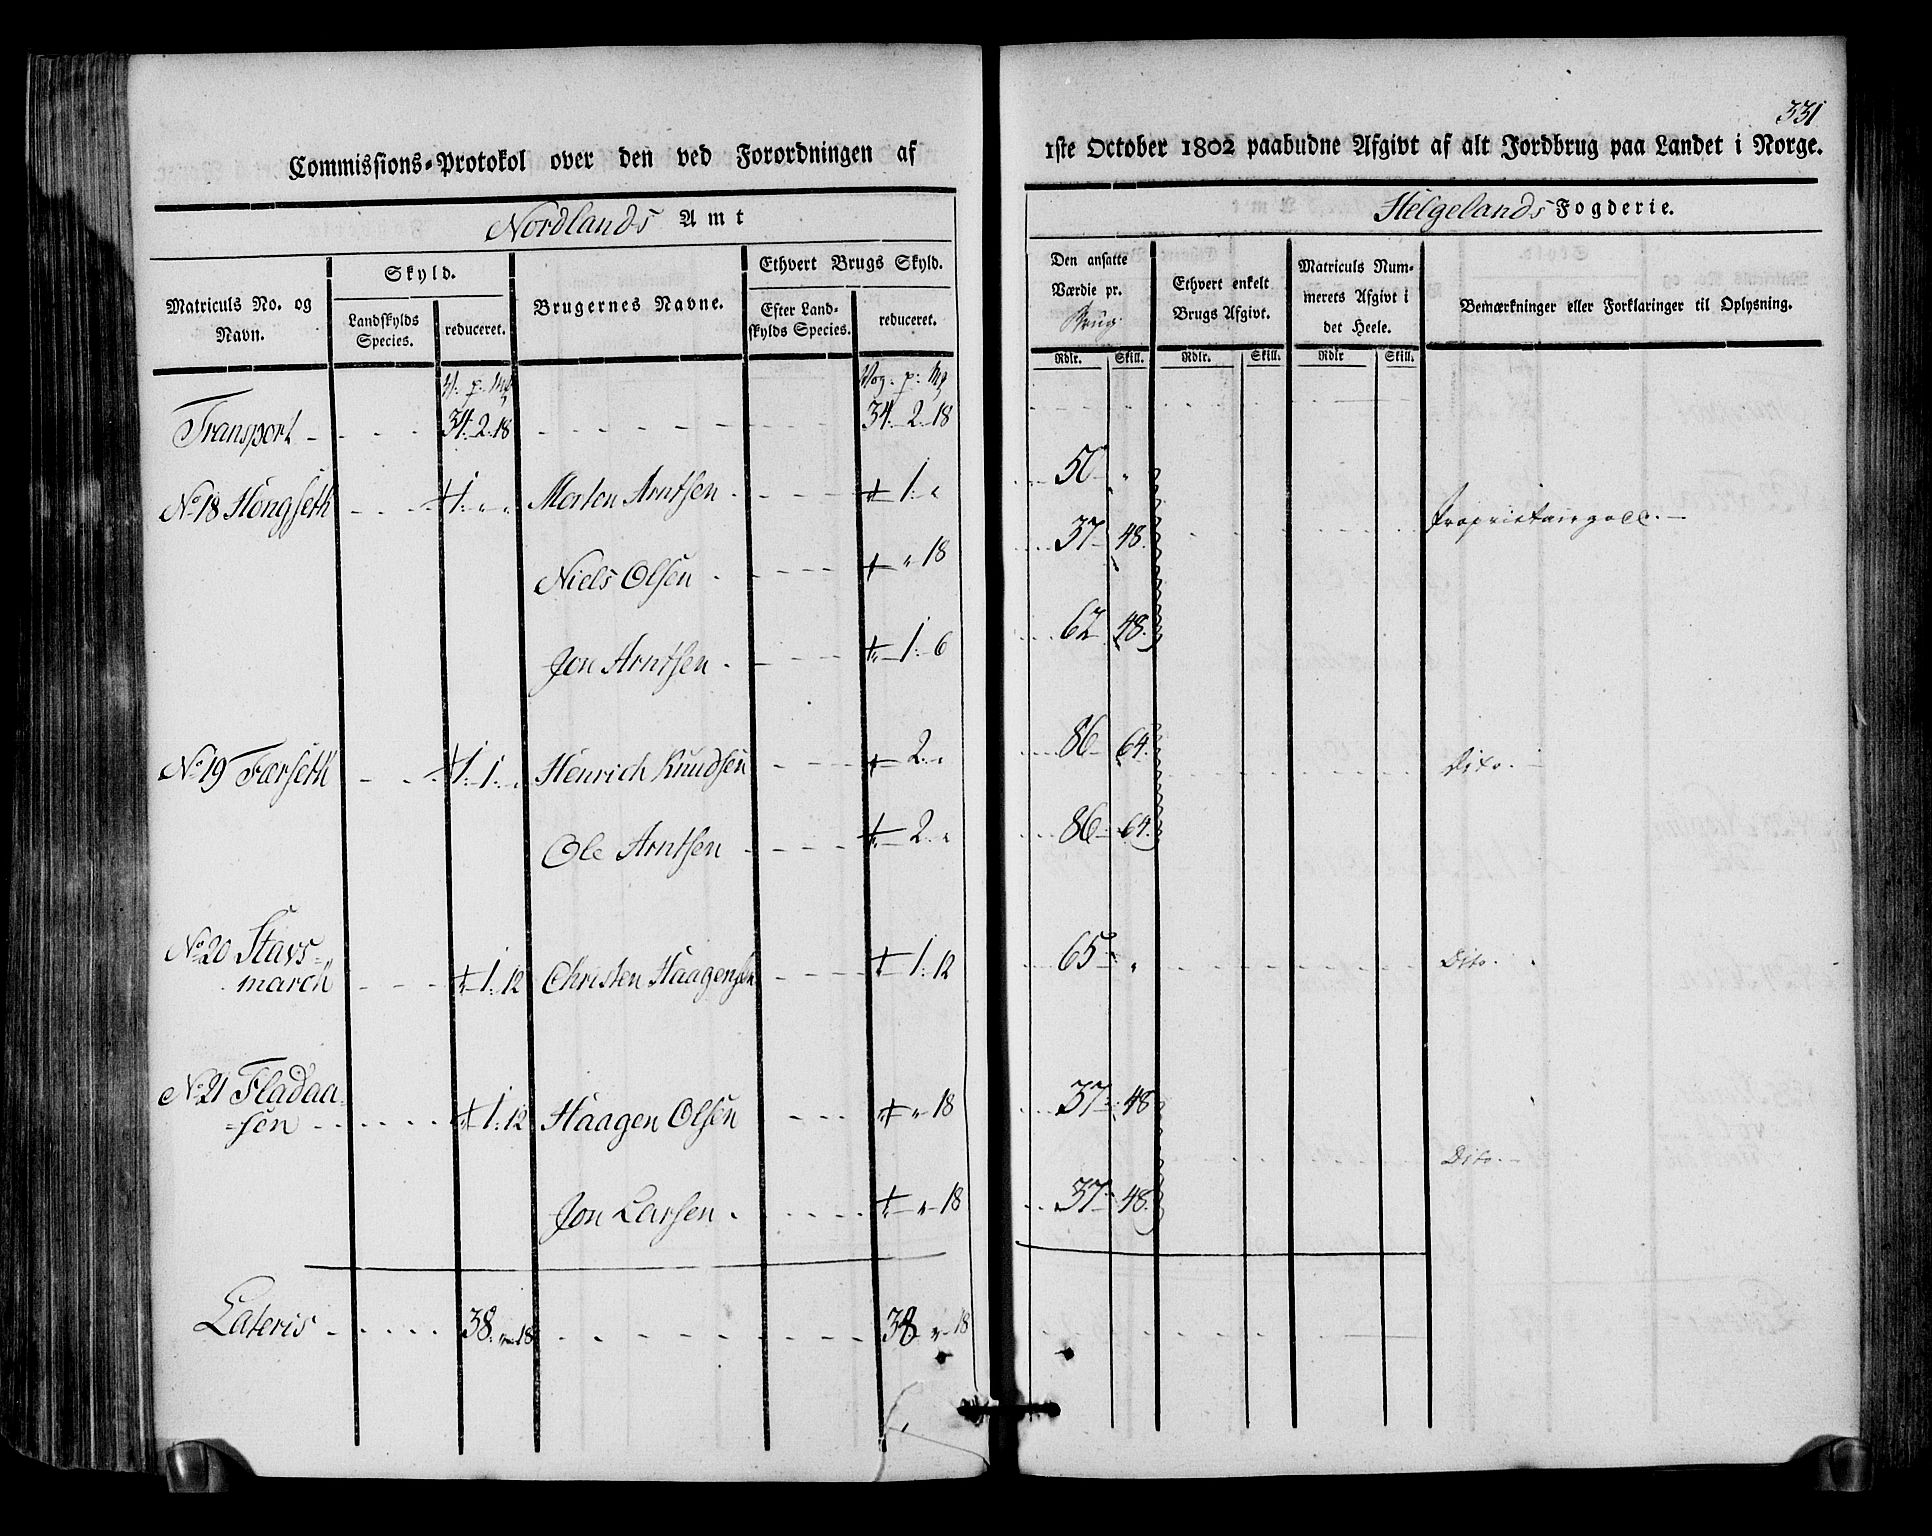 331
Commissions-Protokol over den ved Forordningen af 1ste October 1802 paabudne Afgivt af alt Jordbrug paa Landet i Norge.
Nordlands Amt
Helgelands Fogderie.
Matriculs No. og Navn.
Skyld.
Landskylds Species.
reduceret.
Brugernes Navne.
Ethvert Brugs Skyld.
Efter Landskylds Species.
reduceret.
Den ansatte Værdie pr. Brug
Rdlr. Skill.
Ethvert enkelt Brugs Afgivt.
Rdlr. Skill.
Matriculs Nummerets Afgivt i det Heele.
Rdlr Skill.
Bemærkninger eller Forklaringer til Oplysning.
V. p. Mk Vog. p: Mk
Transport 34. 2. 18 34. 2. 18
No 18 Hongseth 1. " " Morten Arntsen 1. " 50 "
Proprietairgods.
Niels Olsen " 18 37 48.
Jon Arntsen 1. 6 62 48.
No 19 Færseth 1. 1. " Henrich Knudsen 2. " 86 64. Dito.
Ole Arntsen 2. " 86 64.
No 20 Stavs=
march 1. 12 Christen Haagensen 1. 12 65 " Dito.
No 21 Fladaa=
=sen 1. 12 Haagen Olsen " 18 37 48
Dito.
Jon Larsen " 18 37 48.
Lateris 38. " 18 38 " 18